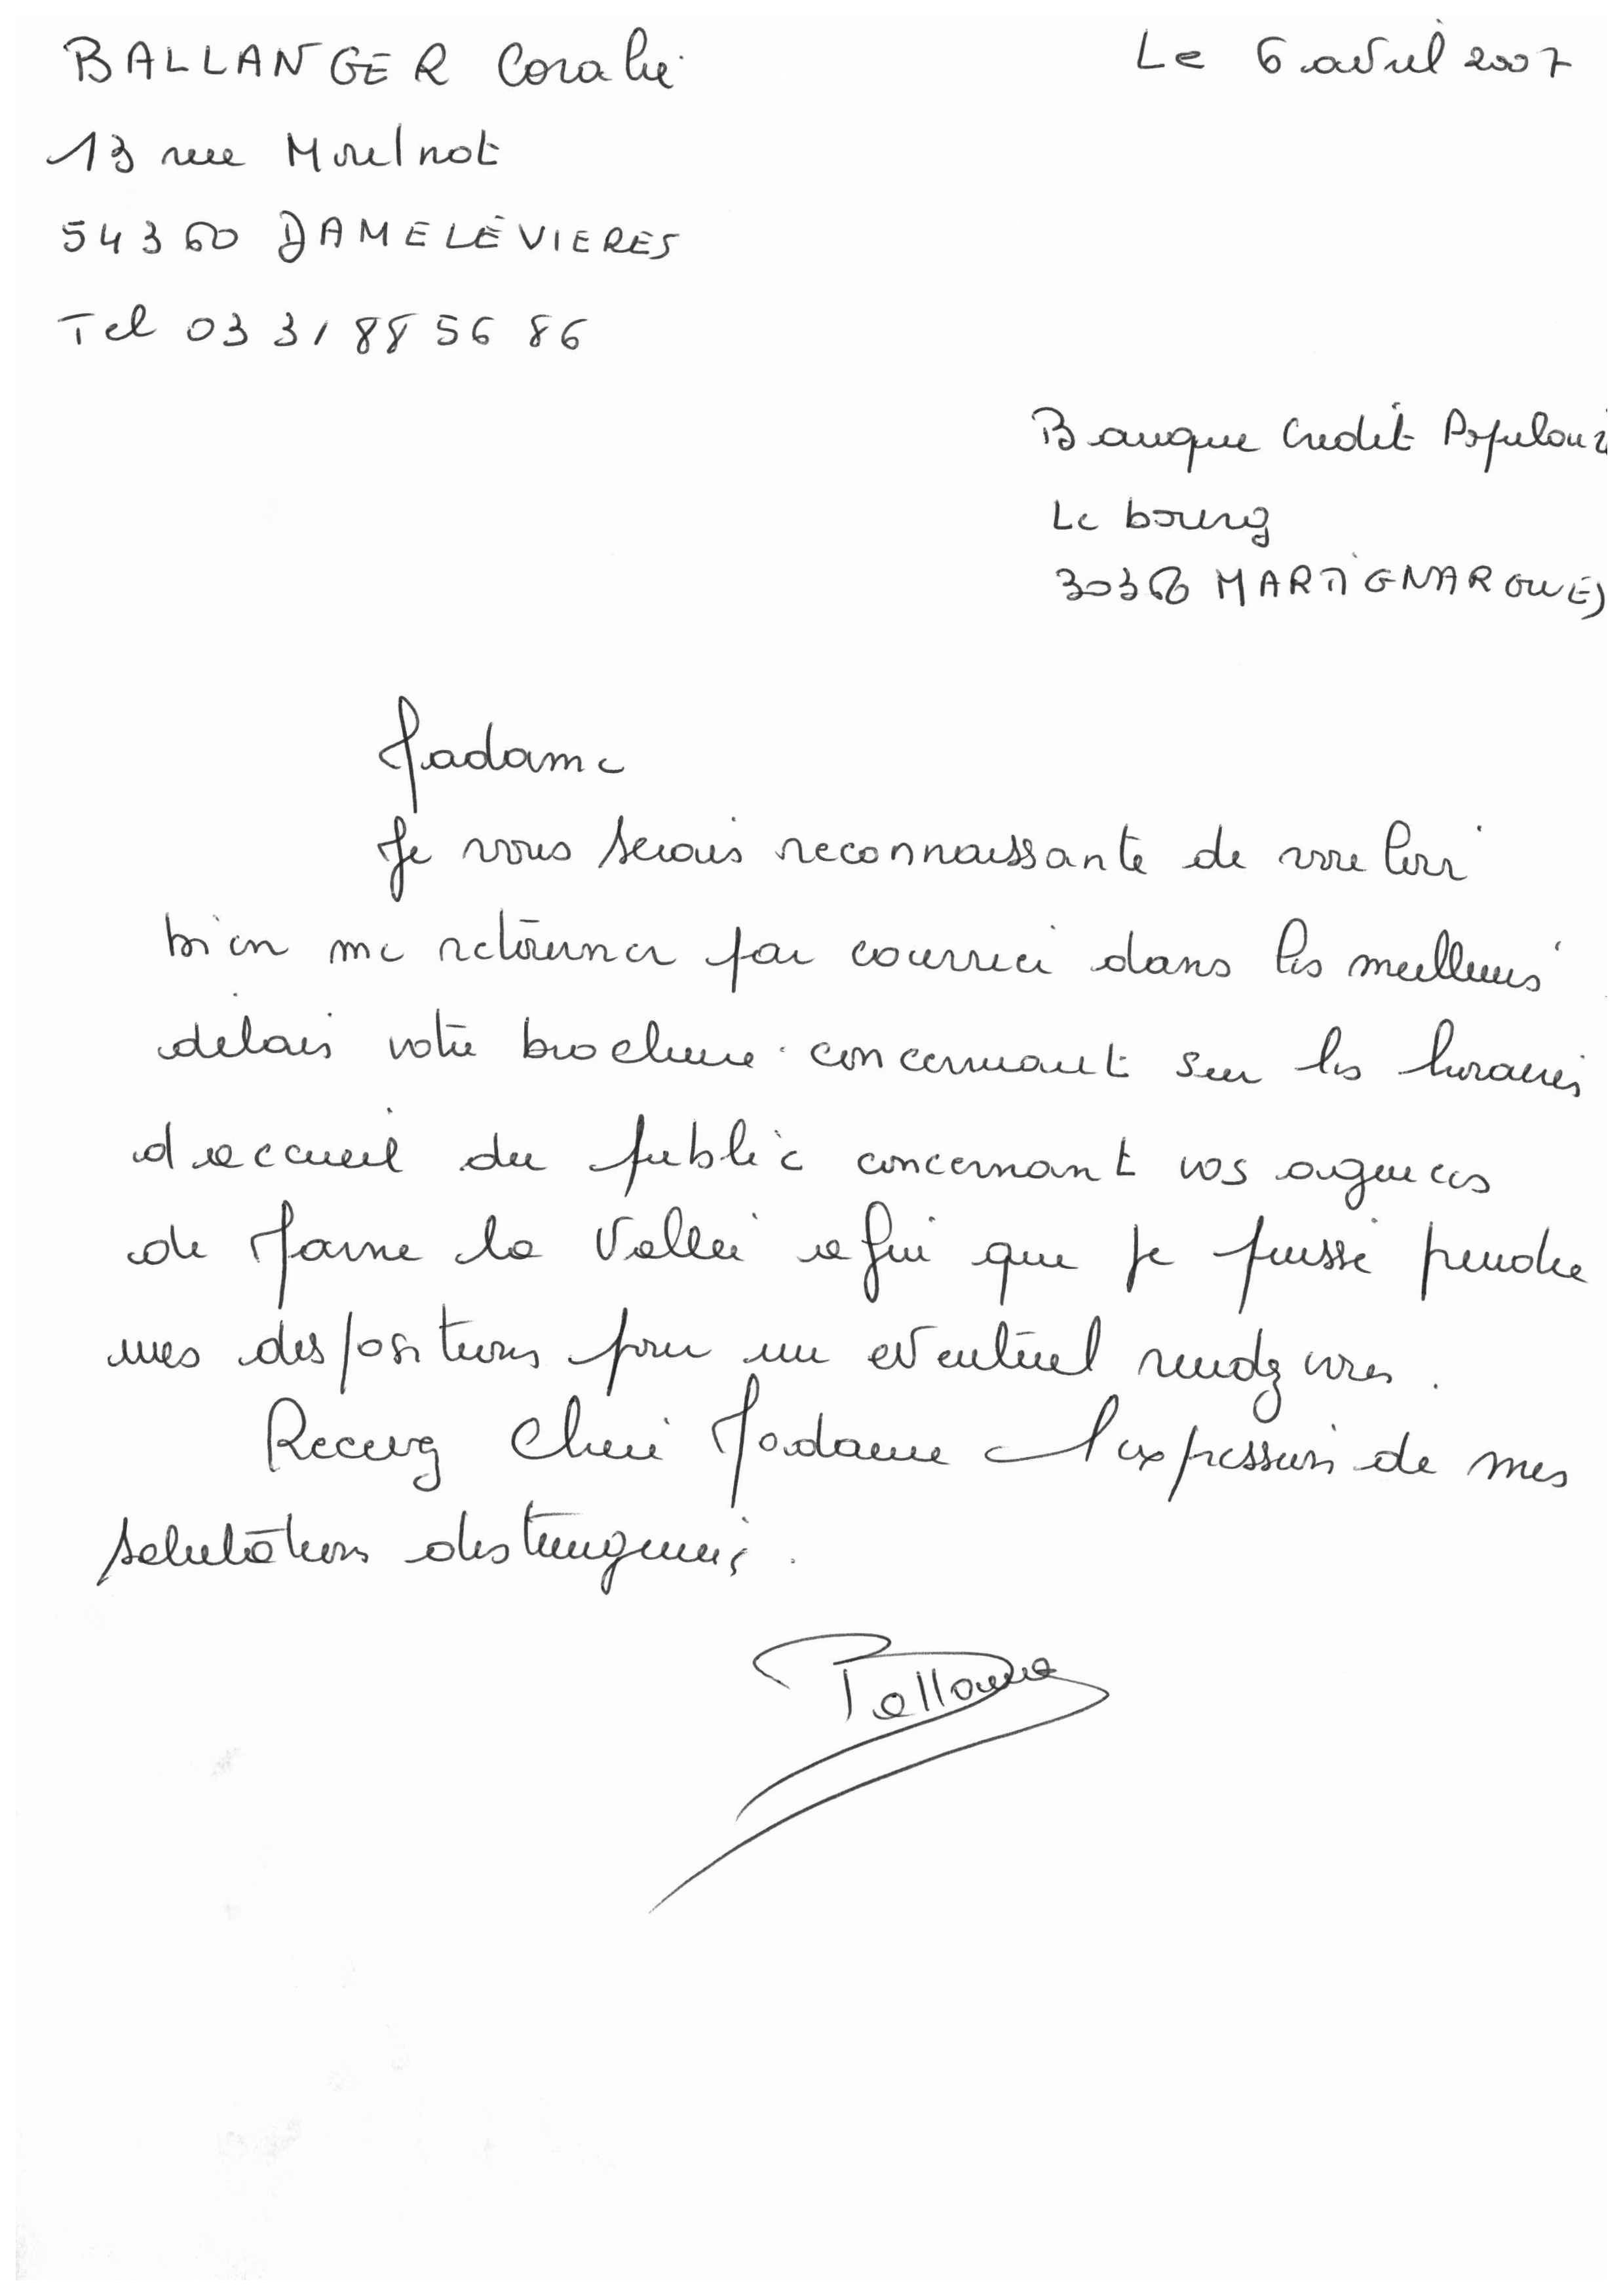 BALLANGER Coralie
Le 6 avril 2007
13 rue Morelnot
54360 DAMELEVIERES
Tel 03 31 88 56 86
Banque Credit Populair
Le bourg
30360 MARTIGNARGUES
Madame
Je vous serais reconnaissante de vouloir
bien me retourner par courrier dans les meilleurs
délais votre brochure concernant sur les horaires
d accueil du public concernant vos agences
de Marne la Vallée afin que je puisse prendre
mes dispositions pour un eventuel rendez vous.
Recevez Chère Madame l'expression de mes
salutations distinguées.